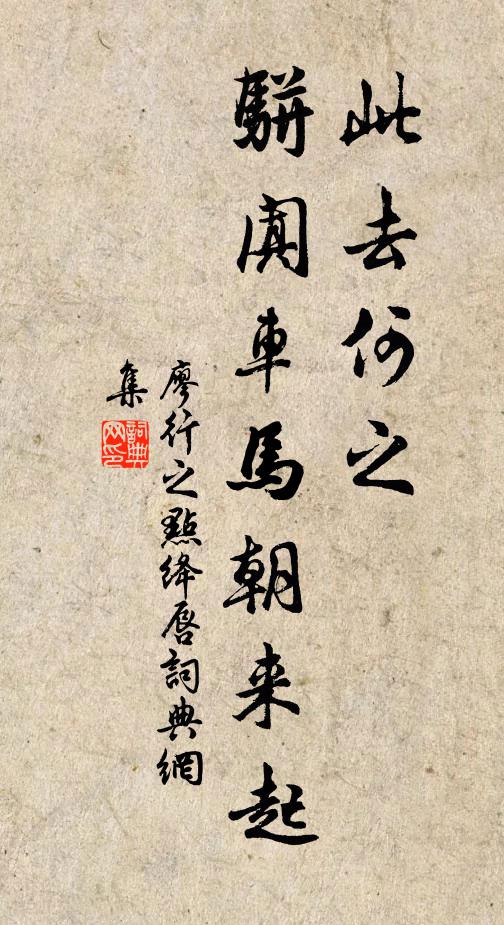 此去何之
駢闐車馬朝来起
廖行之點絳唇詞典網
集
詞典
网印